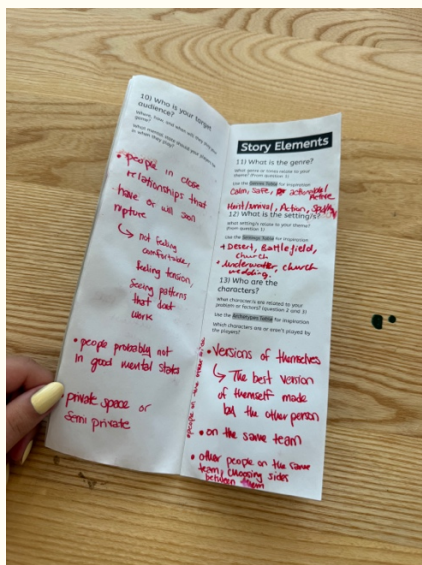 10) Who is your target
audience?
Where, how, and when will they play your
game?
What mental state should your players be
in when they play?
• people in close
relationships that
have or will soon
rupture
↳ not feeling
comfortable,
feeling tension,
Seeing patterns
that dont
work
• people probably not
in good mental state
• private space or
Semi private
Story Elements
11) What is the genre?
What genre or tones relate to your
theme? (from question 1)
Use the Genres Table for inspiration
Calm, Safe,
Active
Action,
12) What is the setting/s?
What setting/s relate to your theme?
(from question 1)
Use the Settings Table for inspiration
Desert, Battlefield,
church
• underwater, church
wedding.
13) Who are the
characters?
What characters are related to your
problem or factors? (question 2 and 3)
Use the Archetypes Table for inspiration
Which characters are or aren't played by
the players?
• Versions of themselves
↳ The best version
of themself made
by the other person
• on the same team
• other people on the same
team, choosing sides
between them
people in the